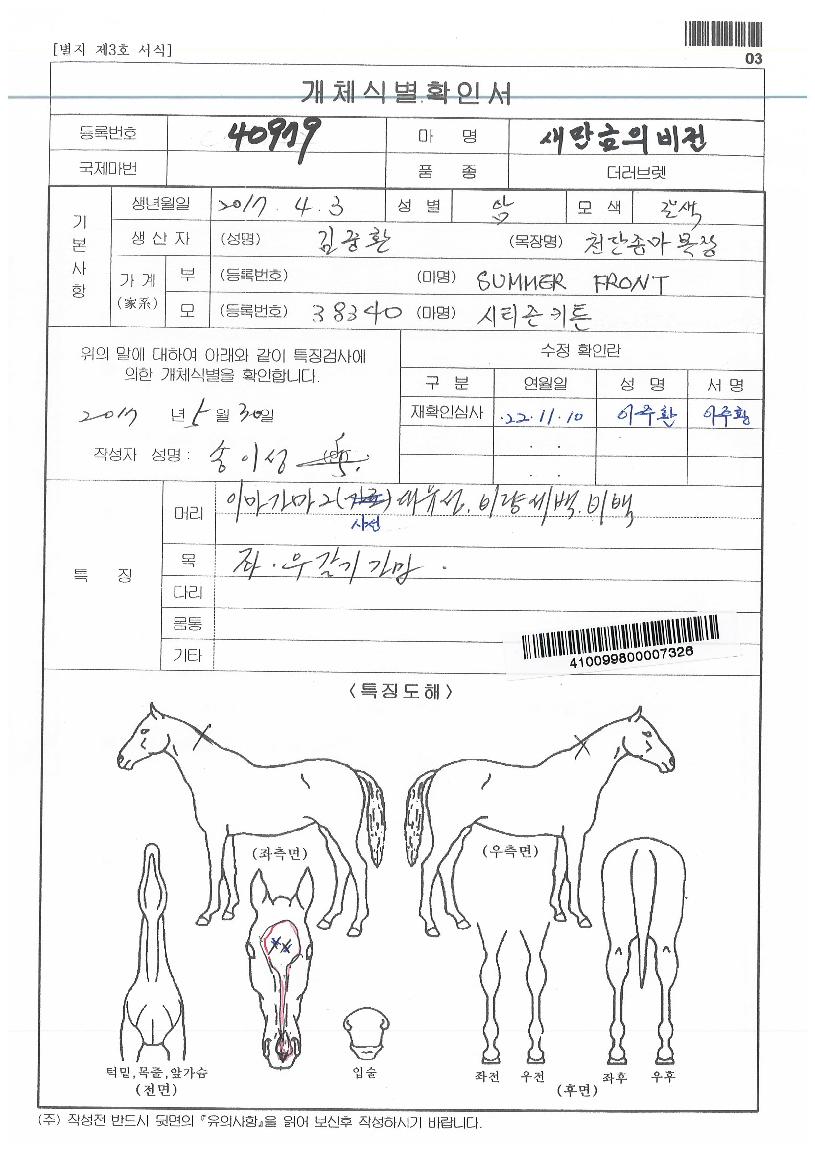 [별지 제3호 서식]
03
개체식별확인서
등록번호 40979 마 명 새만금의비전
국제마번 품 종 더러브렛
기본사항
생년월일 2017. 4. 3 성 별 암 모 색 갈색
생 산 자 (성명) 김중환 (목장명) 천단종마목장
가 계 (家系) 부 (등록번호) (마명) SUMMER FRONT
모 (등록번호) 38340 (마명) 시티즌키튼
위의 말에 대하여 아래와 같이 특징검사에
의한 개체식별을 확인합니다.
2017 년 5 월 30일
작성자 성명 : 송이성
수정 확인란
구 분 연월일 성 명 서 명
재확인심사 .22.11.10 이주환 이주황
특 징
머리 이마가마2( ) 대유성. 비량세백. 비백
사선
목 좌.우갈기가마.
다리
몸통
기타
410099800007326
<특징도해>
(좌측면) (우측면)
턱밑,목줄,앞가슴
(전면)
입술
좌전 우전 좌후 우후
(후면)
(주) 작성전 반드시 뒷면의 『유의사항』을 읽어 보신후 작성하시기 바랍니다.